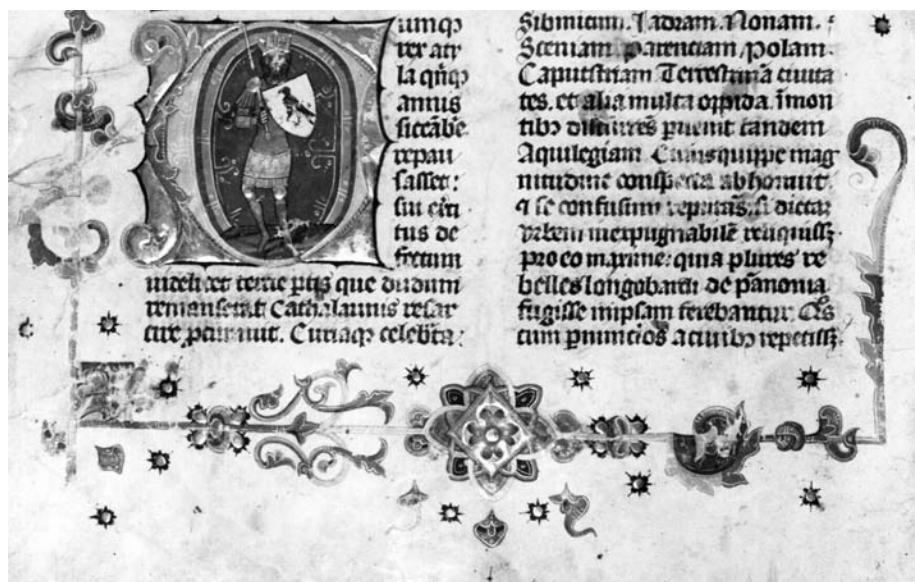 umqꝫ
rex aty
la qn̄qꝫ
annis
siccābe
repau
sasset:
sui eꝛci
tus de
fectum
uidelicet tercie ꝑtis que dudum
remanserat Cathalaunis resar
cire ꝓcurauit. Curiaqꝫ celebrͣta:
Sibinicum. Iadram. Nonam.
Sceniam. parenciam, polam.
Caputistriam Terrestrinā ciuita
tes. et alia multa opida. ī mon
tibꝫ diruēs ꝑuenit tandem
Aquilegiam. Cuius quippe mag
nitudine conspecta abhorruit.
⁊ se confusum reputās, si dictā
vrbem inexpugnabilē reliquissꝫ
pro eo maxime: quia plures re
belles longobardi de pānonia
fugisse in ipsam ferebantur.
cum ꝑ nuncios a ciuibꝫ repetissꝫ